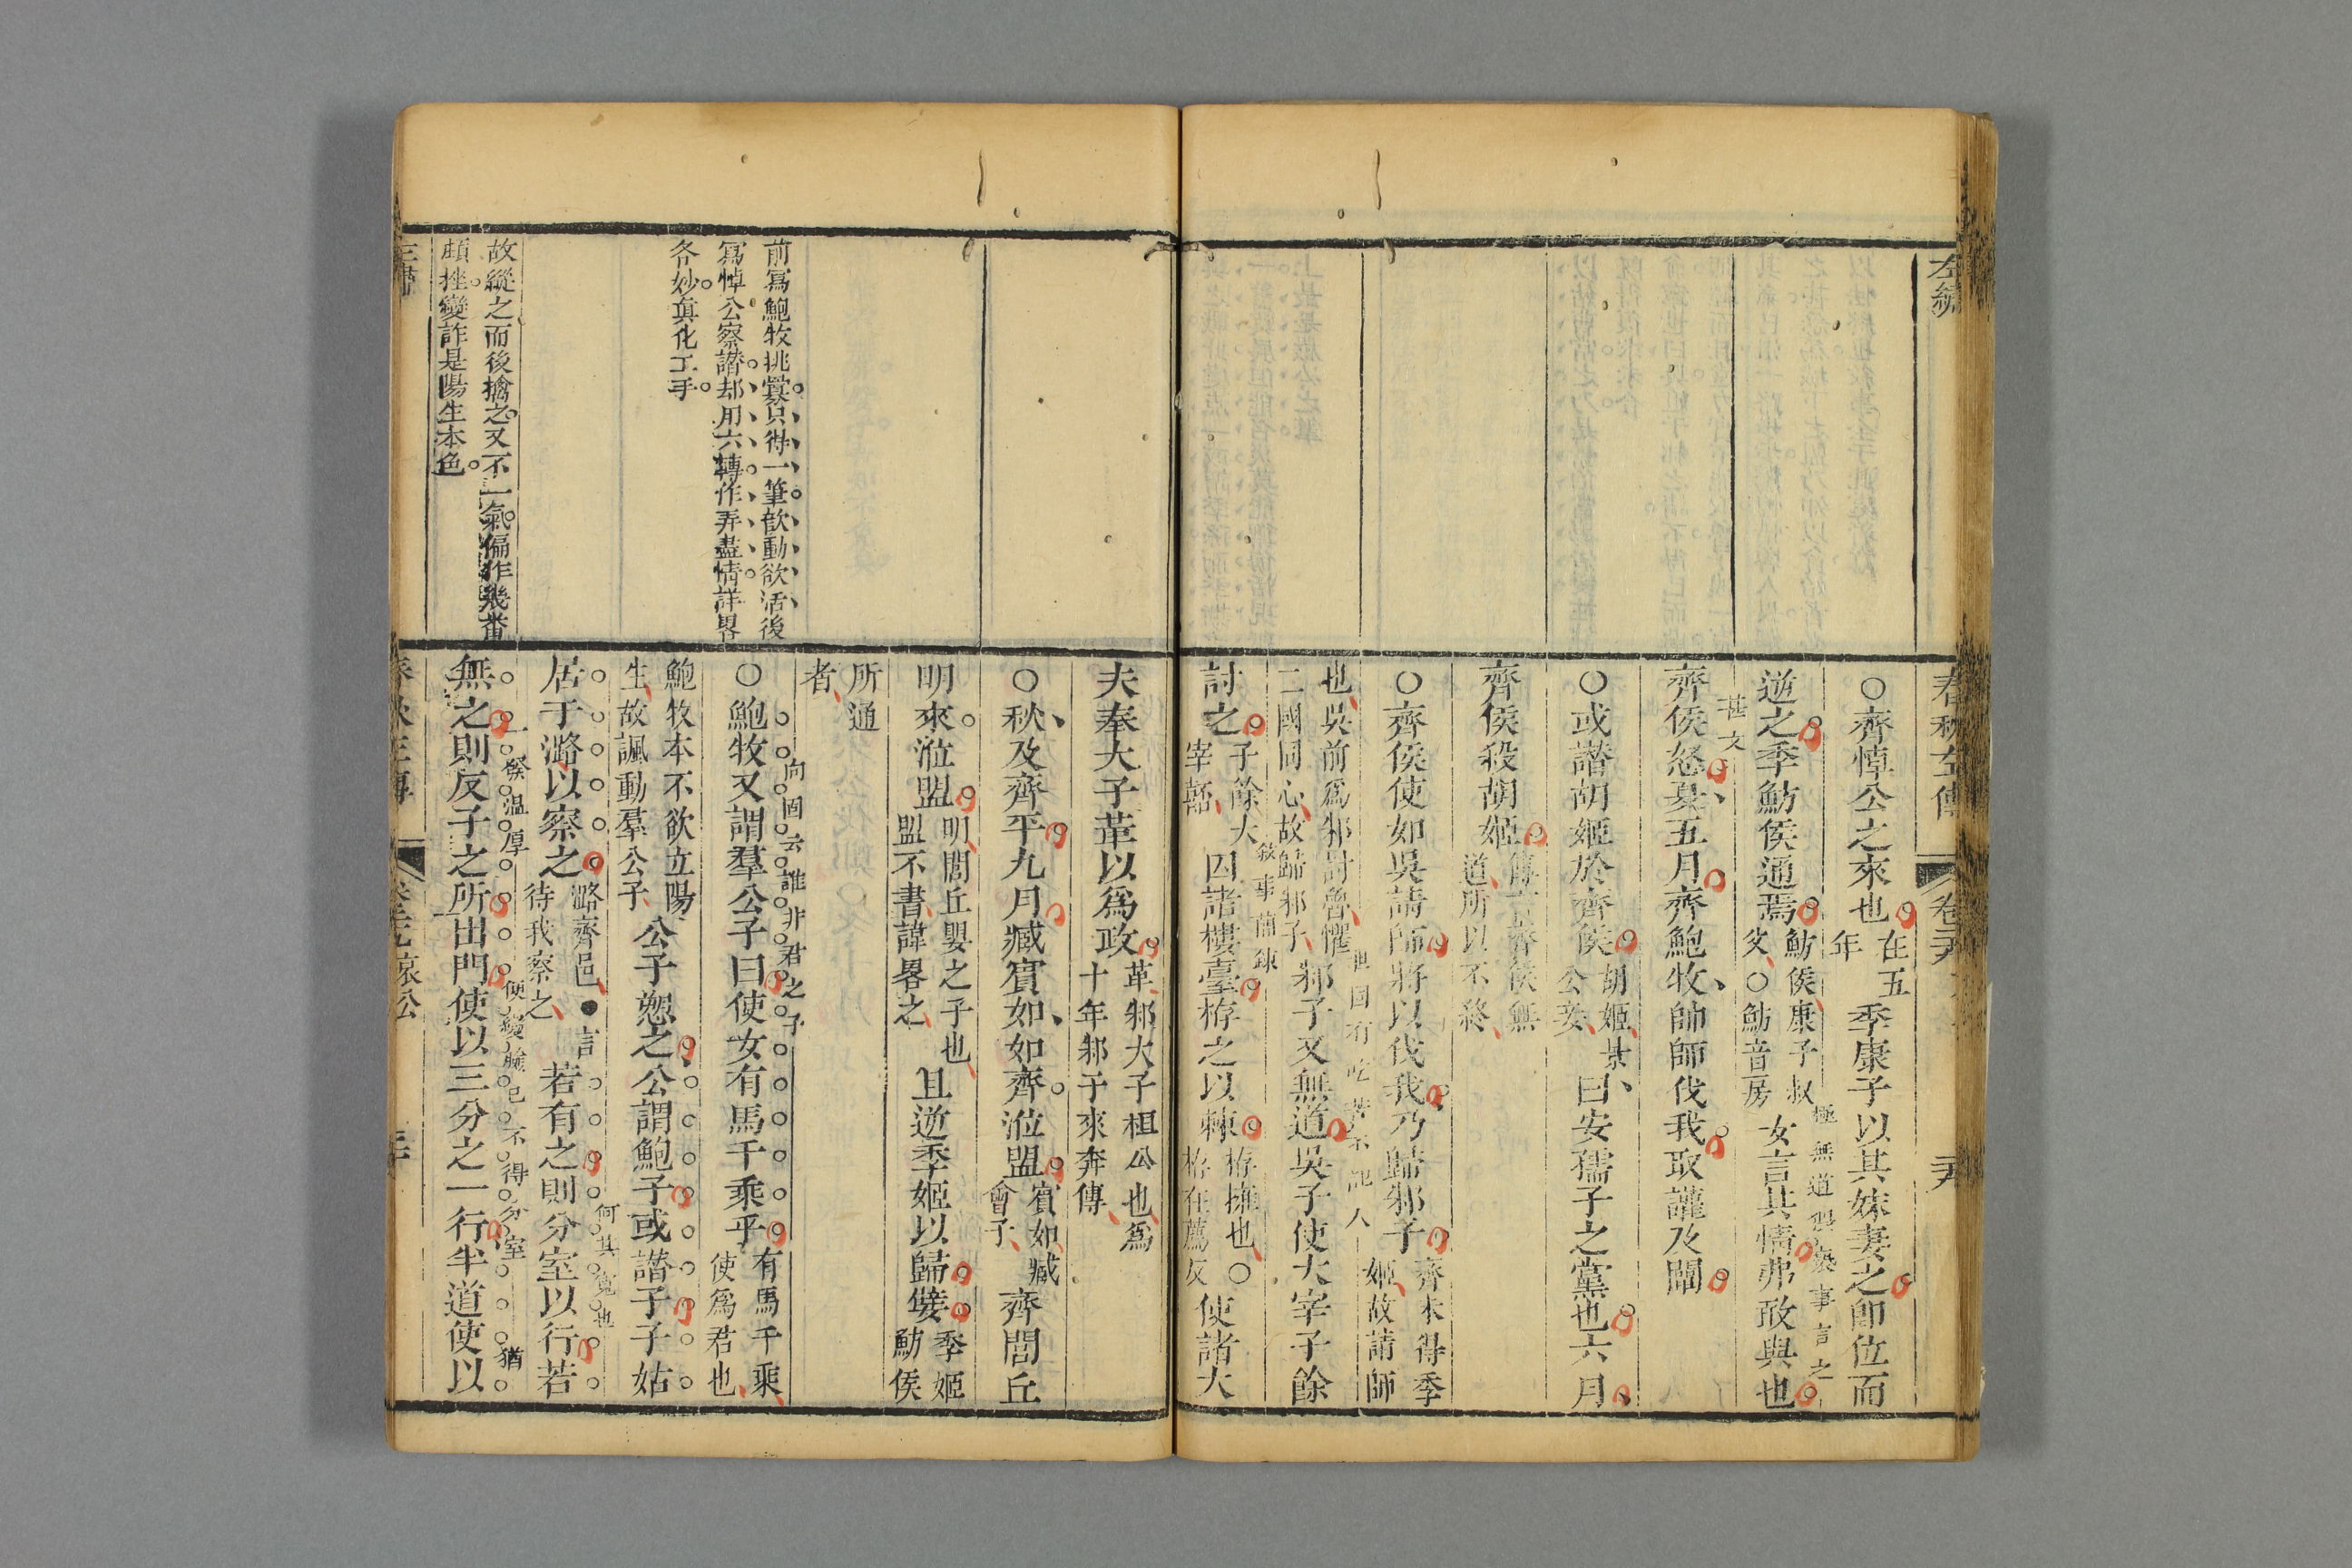 左繡
春秋左傳
○齊悼公之來也在五年季康子以其妹妻之卽位而
逆之季魴侯通焉魴侯康子叔父○魴音房女言其情弗敢與也
極無道淫褻事言之
甚文
齊侯怒夏五月齊鮑牧帥師伐我取讙及闡
○或譖胡姬於齊侯胡姬景公妾曰安孺子之黨也六月
齊侯殺胡姬傳言齊侯無道所以不終
○齊侯使如吳請師將以伐我乃歸邾子齊未得季姬故請師
也吳前爲邾討魯懼二國同心故歸邾子邾子又無道吳子使大宰子餘
敘事簡鍊
討之子餘大宰嚭囚諸樓臺栫之以棘栫擁也○栫在薦反使諸大
夫奉大子革以爲政革邾大子桓公也爲十年邾子來奔傳
○秋及齊平九月臧賓如如齊涖盟賓如臧會子齊閭丘
明來涖盟明閭丘嬰之子也盟不書諱畧之且逆季姬以歸嬖季姬魴侯
所通者
前寫鮑牧挑釁只得一筆歆動欲活後
寫悼公察譖却用六轉作弄盡情詳畧
各妙眞化工手
○鮑牧又謂羣公子曰使女有馬千乘乎有馬千乘使爲君也
向固云誰非君之子
鮑牧本不欲立陽生故諷動羣公子公子愬之公謂鮑子或譖子子姑
居于潞以察之潞齊邑●言待我察之若有之則分室以行若
何其寬也
故縱之而後擒之又不一氣偏作幾番
頓挫變詐是陽生本色
無之則反子之所出門使以三分之一行半道使以
一發溫厚
便變臉已不得分室
猶
春秋左傳
哀公